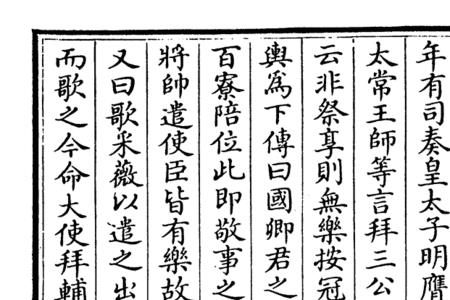 年有司奏皇太子明膺
太常王師等言拜三公
云非祭享則無樂按冠
輿為下傳曰國卿君之
百寮陪位此即敬事之
將帥遣使臣皆有樂故
又曰歌采薇以遣之出
而歌之今命大使拜輔